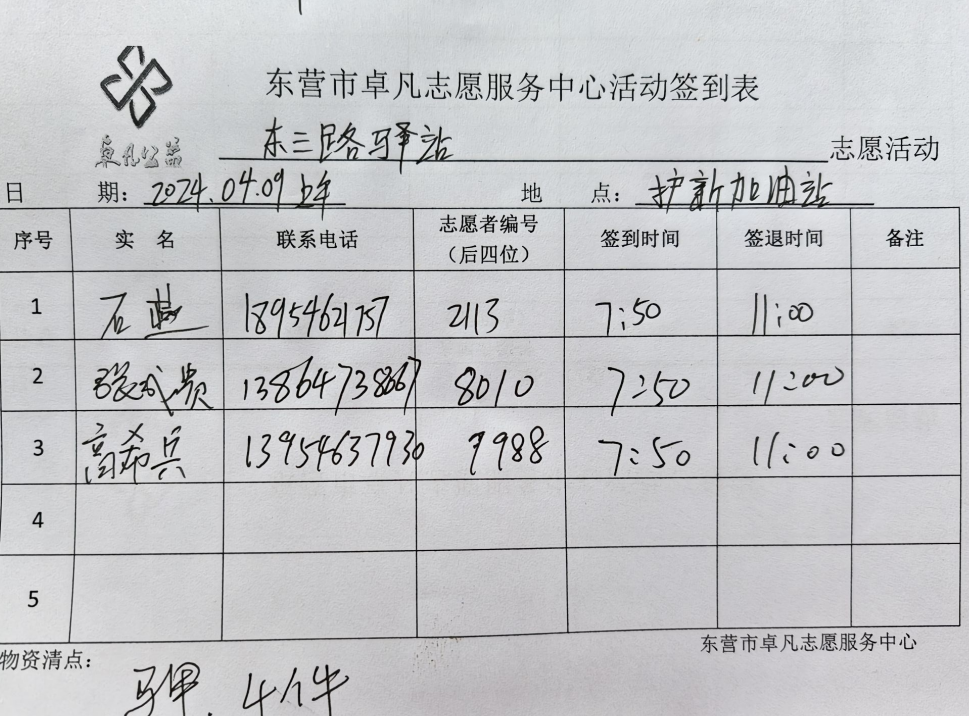 东营市卓凡志愿服务中心活动签到表
卓凡公益
东三路驿站 志愿活动
日 期: 2024.04.09 上午 地 点: 护新加油站
序号 实 名 联系电话 志愿者编号(后四位) 签到时间 签退时间 备注
1 石 18954621757 2113 7:50 11:00
2 张成贵 13864738667 8010 7:50 11:00
3 高希兵 13954637930 7988 7:50 11:00
4
5
东营市卓凡志愿服务中心
物资清点:
马甲. 4件